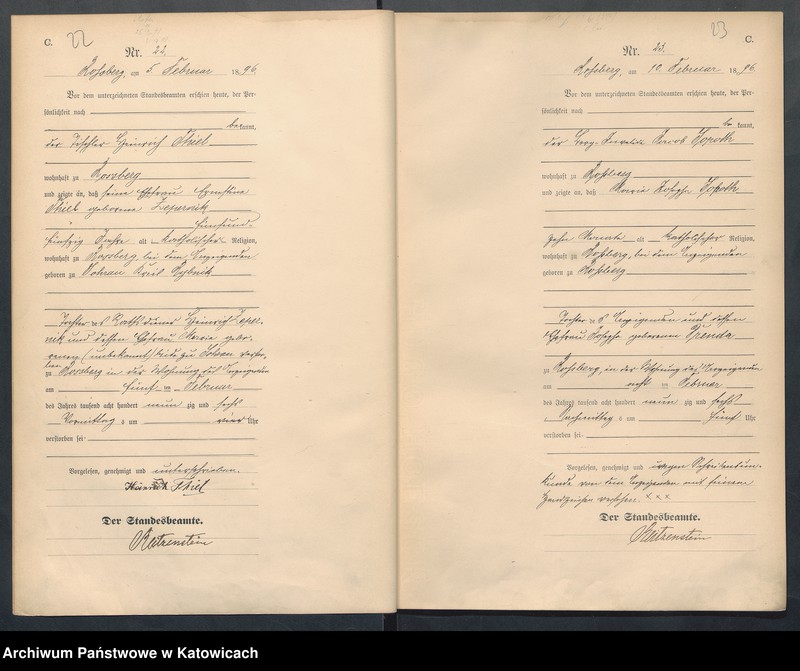 C. 22
Nr. 22.
Rossberg, am 5. Februar 1896.
Vor dem unterzeichneten Standesbeamten erschien heute, der Per-
sönlichkeit nach
bekannt,
der Tischler Heinrich Thiel
wohnhaft zu Rossberg
und zeigte an, daß seine Ehefrau Ernestine
Thiel geborene
fünfund
fünfzig Jahre alt, katholischer Religion,
wohnhaft zu Rossberg bei dem Anzeigenden
geboren zu Sohrau Kreis Rybnik
Tochter des Heinrich
und dessen Ehefrau Marie gebo-
renen (unbekannt) Beide zu Sohrau verstor-
ben
zu Rossberg in der Wohnung des Anzeigenden
am fünf ten Februar
des Jahres tausend acht hundert neun zig und sechs
Vormittag s um vier Uhr
verstorben sei.
Vorgelesen, genehmigt und unterschrieben.
Heinrich Thiel
Der Standesbeamte.
Reitzenstein
23 C.
Nr. 23.
Rossberg, am 10. Februar 1896.
Vor dem unterzeichneten Standesbeamten erschien heute, der Per-
sönlichkeit nach
bekannt,
der Jacob Kopoth
wohnhaft zu Roßberg
und zeigte an, daß Marie Sophie Kopoth
zehn Monate alt, katholischer Religion,
wohnhaft zu Roßberg, bei dem Anzeigenden
geboren zu Roßberg
Tochter des Anzeigenden und dessen
Ehefrau Sophie geborenen
zu Roßberg, in der Wohnung des Anzeigenden
am ten Februar
des Jahres tausend acht hundert neun zig und sechs
Nachmittag s um fünf Uhr
verstorben sei.
Vorgelesen, genehmigt und wegen Schreibensun-
kunde von dem Anzeigenden mit seinem
Handzeichen versehen. x x x
Der Standesbeamte.
Reitzenstein
Archiwum Państwowe w Katowicach